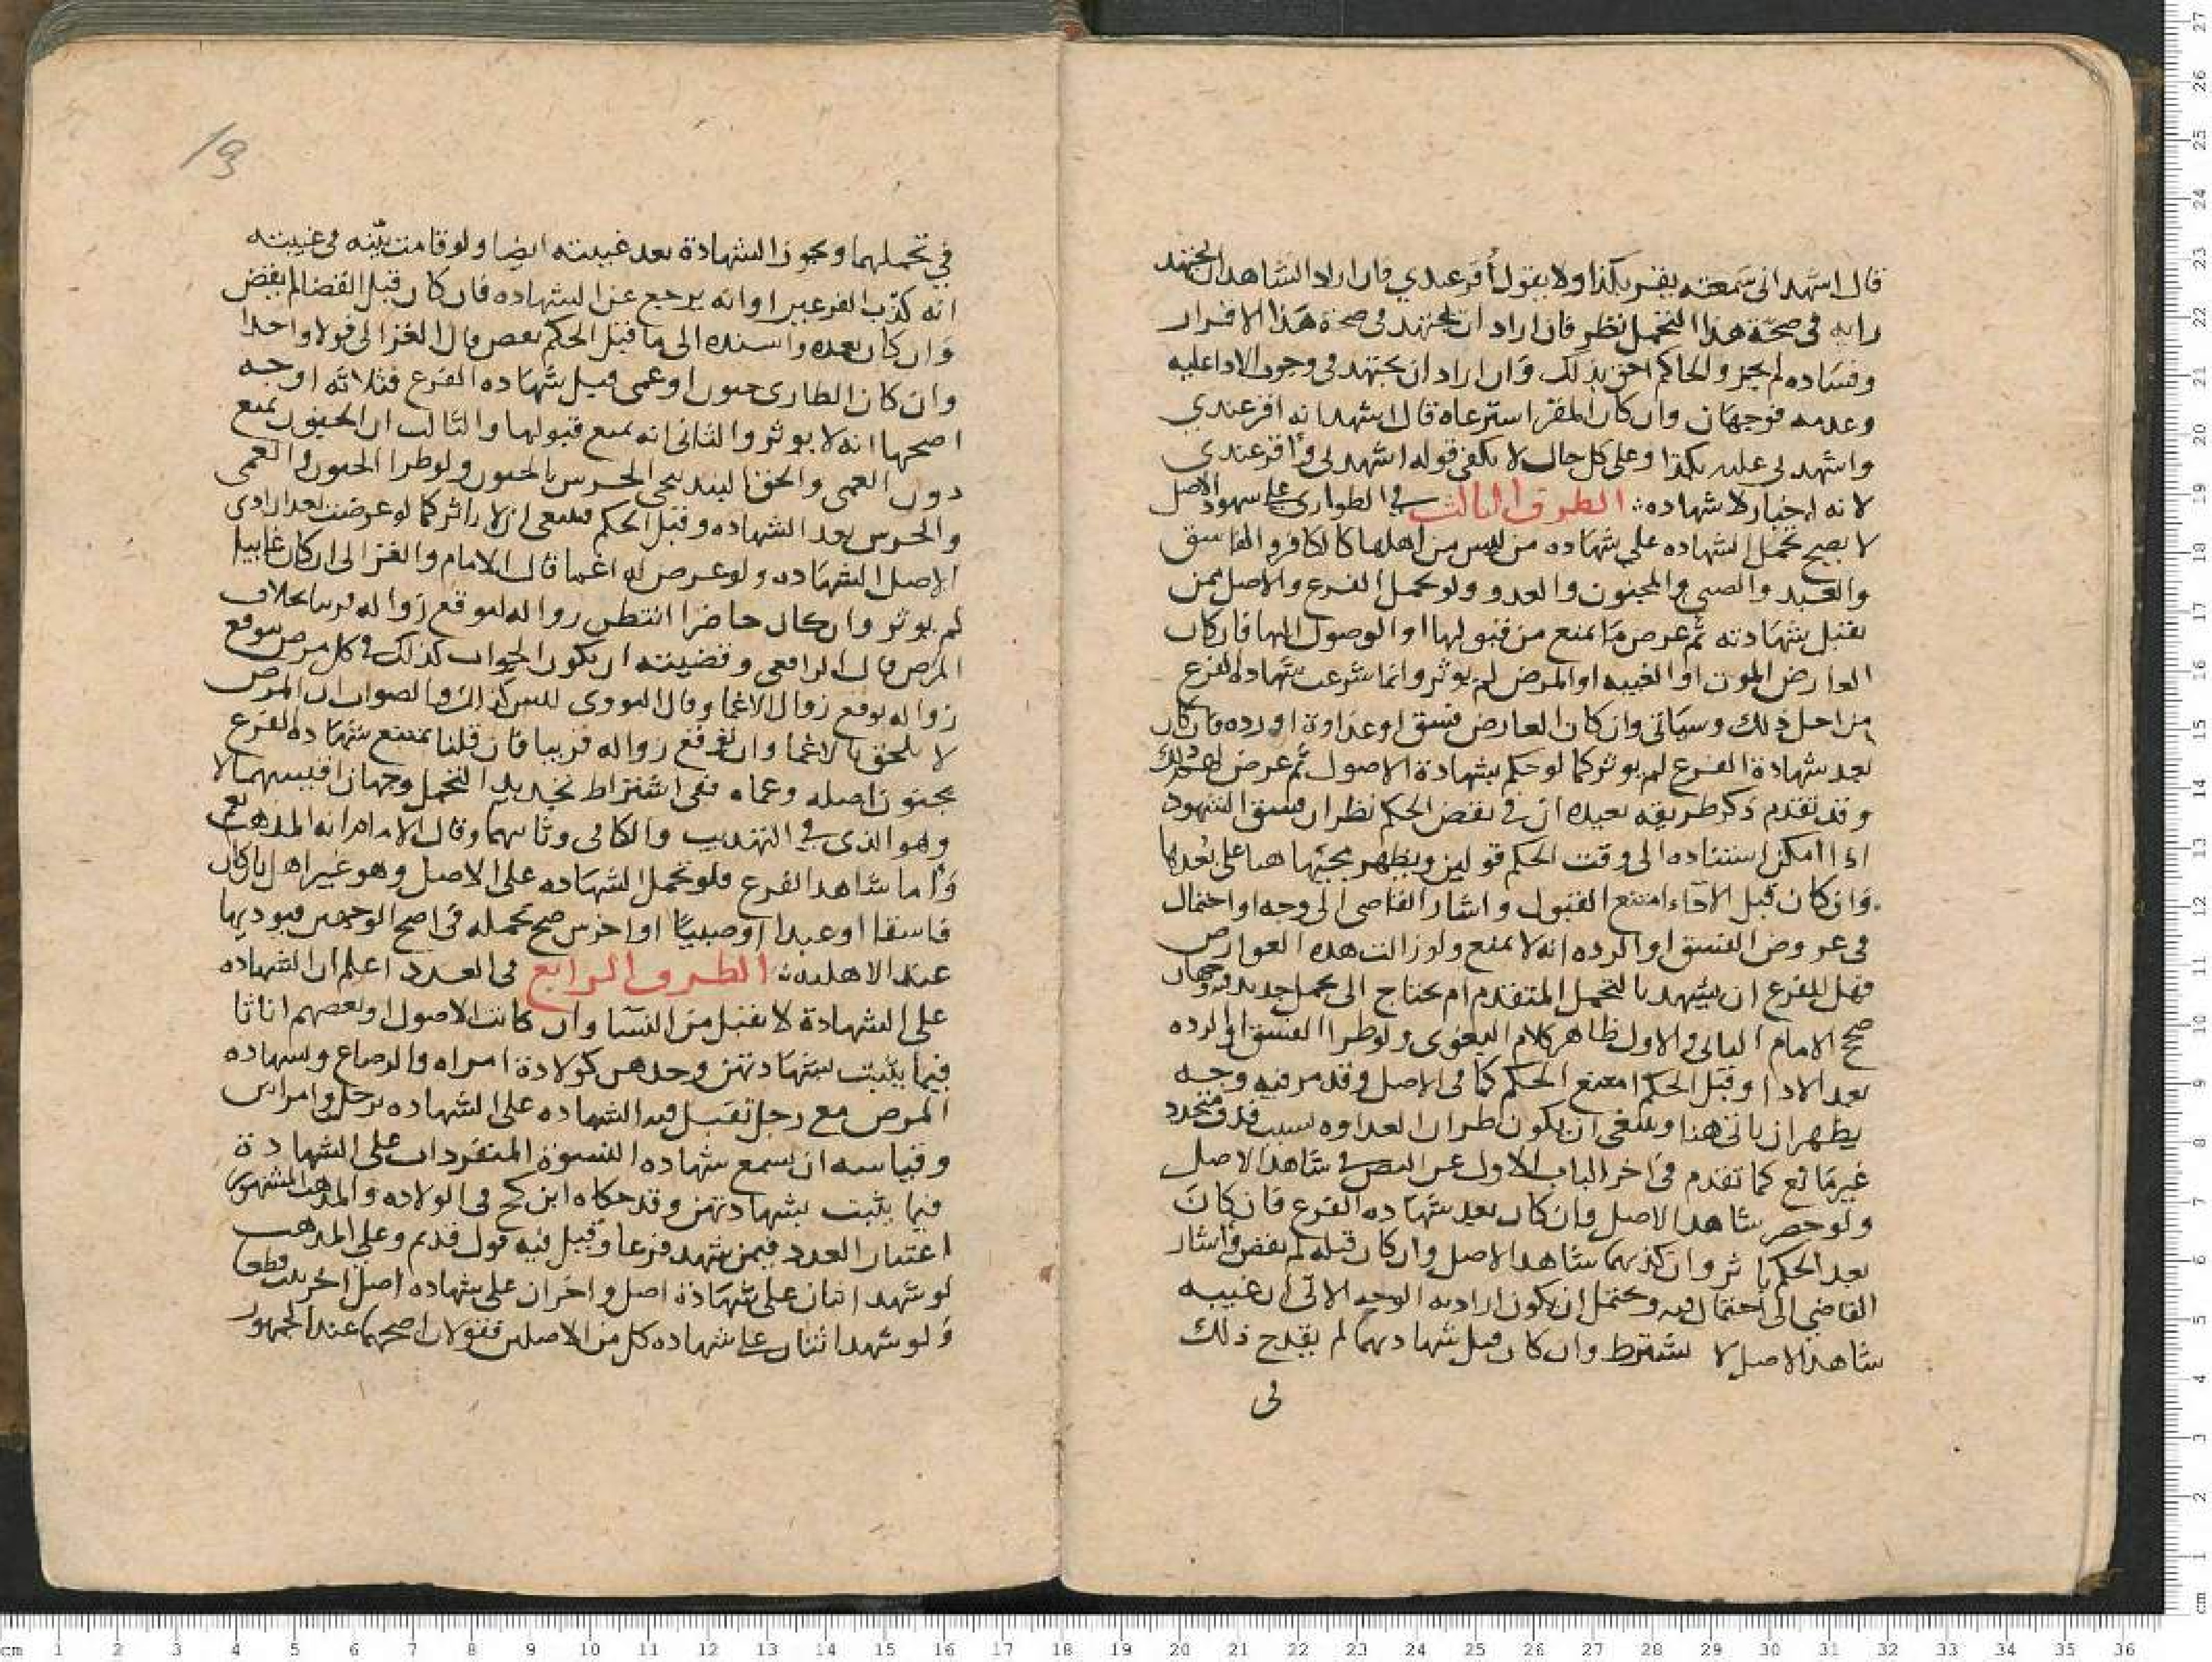 قال اشهد اني سمعته يقر بكذا ولا يقول أقر عندي فان اراد الشاهد ان يجتهد
رايه في صحة هذا التحمل نظر فان اراد ان يجتهد في صحة هذا الاقرار
وفساده لم يجز والحاكم احق بذلك وان اراد ان يجتهد في وجوب الادا عليه
وعدمه فوجهان وان كان المقر استرعاه قال اشهد انه اقر عندي
واشهدني عليه بكذا وعلى كل حال لا يكفي قوله اشهدني وأقر عندي
لانه اخبار لا شهاده الطرف الثالث في الطواري على شهود الاصل
لا يصح تحمل الشهاده على شهاده من ليس من اهلها كالكافر والفاسق
والعبد والصبي والمجنون والعدو ولو تحمل الفرع والاصل ممن
تقبل شهادته ثم عرض ما يمنع من قبولها او الوصول اليها فان كان
العارض الموت او الغيبه او المرض لم يوثر وانما شرعت شهاده الفرع
من اجل ذلك وسياتي وان كان العارض فسق او عداوة او رده فان كان
بعد شهادة الفرع لم يوثر كما لو حكم بشهادة الاصول ثم عرض لهم ذلك
وقد تقدم ذكر طريقه بعيده ان في نقض الحكم نظر ان فسق الشهود
اذا امكن استناده الى وقت الحكم قولين ويظهر مجيها هنا على بعدها
وان كان قبل الآداء امتنع القبول واشار القاضي الى وجه او احتمال
في عروض الفسق او الرده انه لا يمنع ولو زالت هذه العوارض
فهل للفرع ان يشهد بالتحمل المتقدم ام يحتاج الى تحمل جديد فوجهان
صحح الامام الثاني والاول ظاهر كلام البغوي ولو طرا الفسق او الرده
بعد الادا وقبل الحكم امتنع الحكم كما في الاصل وقد مر فيه وجه
يظهر ان ياتي هنا وينبغي ان يكون طران العداوه بسبب قذف متجدد
غير مانع كما تقدم في اخر الباب الاول عن النص في شاهد الاصل
ولو حضر شاهد الاصل فان كان بعد شهاده الفرع فان كان
بعد الحكم لم يوثر وان كذبهما شاهد الاصل وان كان قبله لم يقض واشار
القاضي الى احتمال فيه ويحتمل ان يكون اراد به الوجه الاتي ان غيبه
شاهد الاصل لا تشترط وان كان قبل شهادتهما لم يقدح ذلك
في
13
في تحملهما ويجوز الشهادة بعد غيبته ايضا ولو قامت بينه في غيبته
انه كذب الفرعين او انه يرجع عن الشهاده فان كان قبل القضا لم يقض
وان كان بعده واسنده الى ما قبل الحكم نقض قال الغزالي قولا واحدا
وان كان الطاري جنون او عمي قبل شهاده الفرع فثلاثه اوجه
اصحها انه لا يوثر والثاني انه يمنع قبولها والثالث ان الجنون يمنع
دون العمي والحق البندنيجي الخرس بالجنون ولو طرا الجنون والعمي
والخرس بعد الشهاده وقبل الحكم فينبغي ان لا يؤثر كما لو عرضت بعد ان ادى
الاصل الشهاده ولو عرض له اغما قال الامام والغزالي ان كان غايبا
لم يوثر وان كان حاضرا انتظر زواله لتوقع زواله قريبا بخلاف
المرض قال الرافعي وقضيته ان يكون الجواب كذلك في كل مرض يتوقع
زواله توقع زوال الاغما وقال النووي ليس كذلك والصواب ان المرض
لا يلحق بالاغما وان توقع زواله قريبا فان قلنا تمتنع شهاده الفرع
بجنون اصله وعماه ففي اشتراط تجديد التحمل وجهان اقيسهما لا
وهو الذي في التهذيب والكافي وثانيهما وقال الامام انه المذهب نعم
وأما شاهد الفرع فلو تحمل الشهاده على الاصل وهو غير اهل بان كان
فاسقا او عبدا او صبيا او اخرس صح تحمله في اصح الوجهين فيوديها
عند الاهليه الطرف الرابع في العدد اعلم ان الشهاده
على الشهادة لا تقبل من النسا وان كانت الاصول او بعضهم اناثا
فيما يثبت بشهادتهن وحدهن كولادة امراه والرضاع وشهاده
المرض مع رجل تقبل فيه الشهاده على الشهاده برجل وامراتين
وقياسه ان تسمع شهاده النسوة المنفردات على الشهادة
فيما يثبت بشهادتهن وقد حكاه ابن كج في الولاده والمذهب المشهور
اعتبار العدد فيمن شهد فرعا وقيل فيه قول قديم وعلى المذهب
لو شهد اثنان على شهادة اصل واخران على شهاده اصل اخر ثبت قطعا
ولو شهد اثنان على شهاده كل من الاصلين فقولان اصحهما عند الجمهور